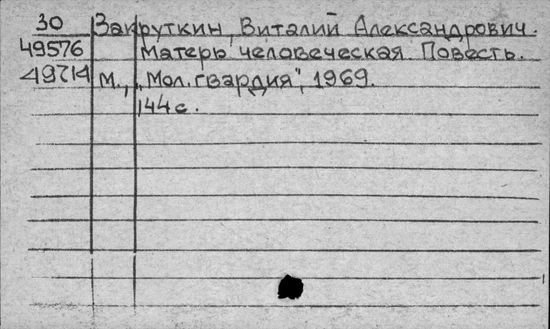 30 Закруткин, Виталий Александрович.
49576 Матерь человеческая. Повесть.
49714 М., „Мол. гвардия", 1969.
144 с.